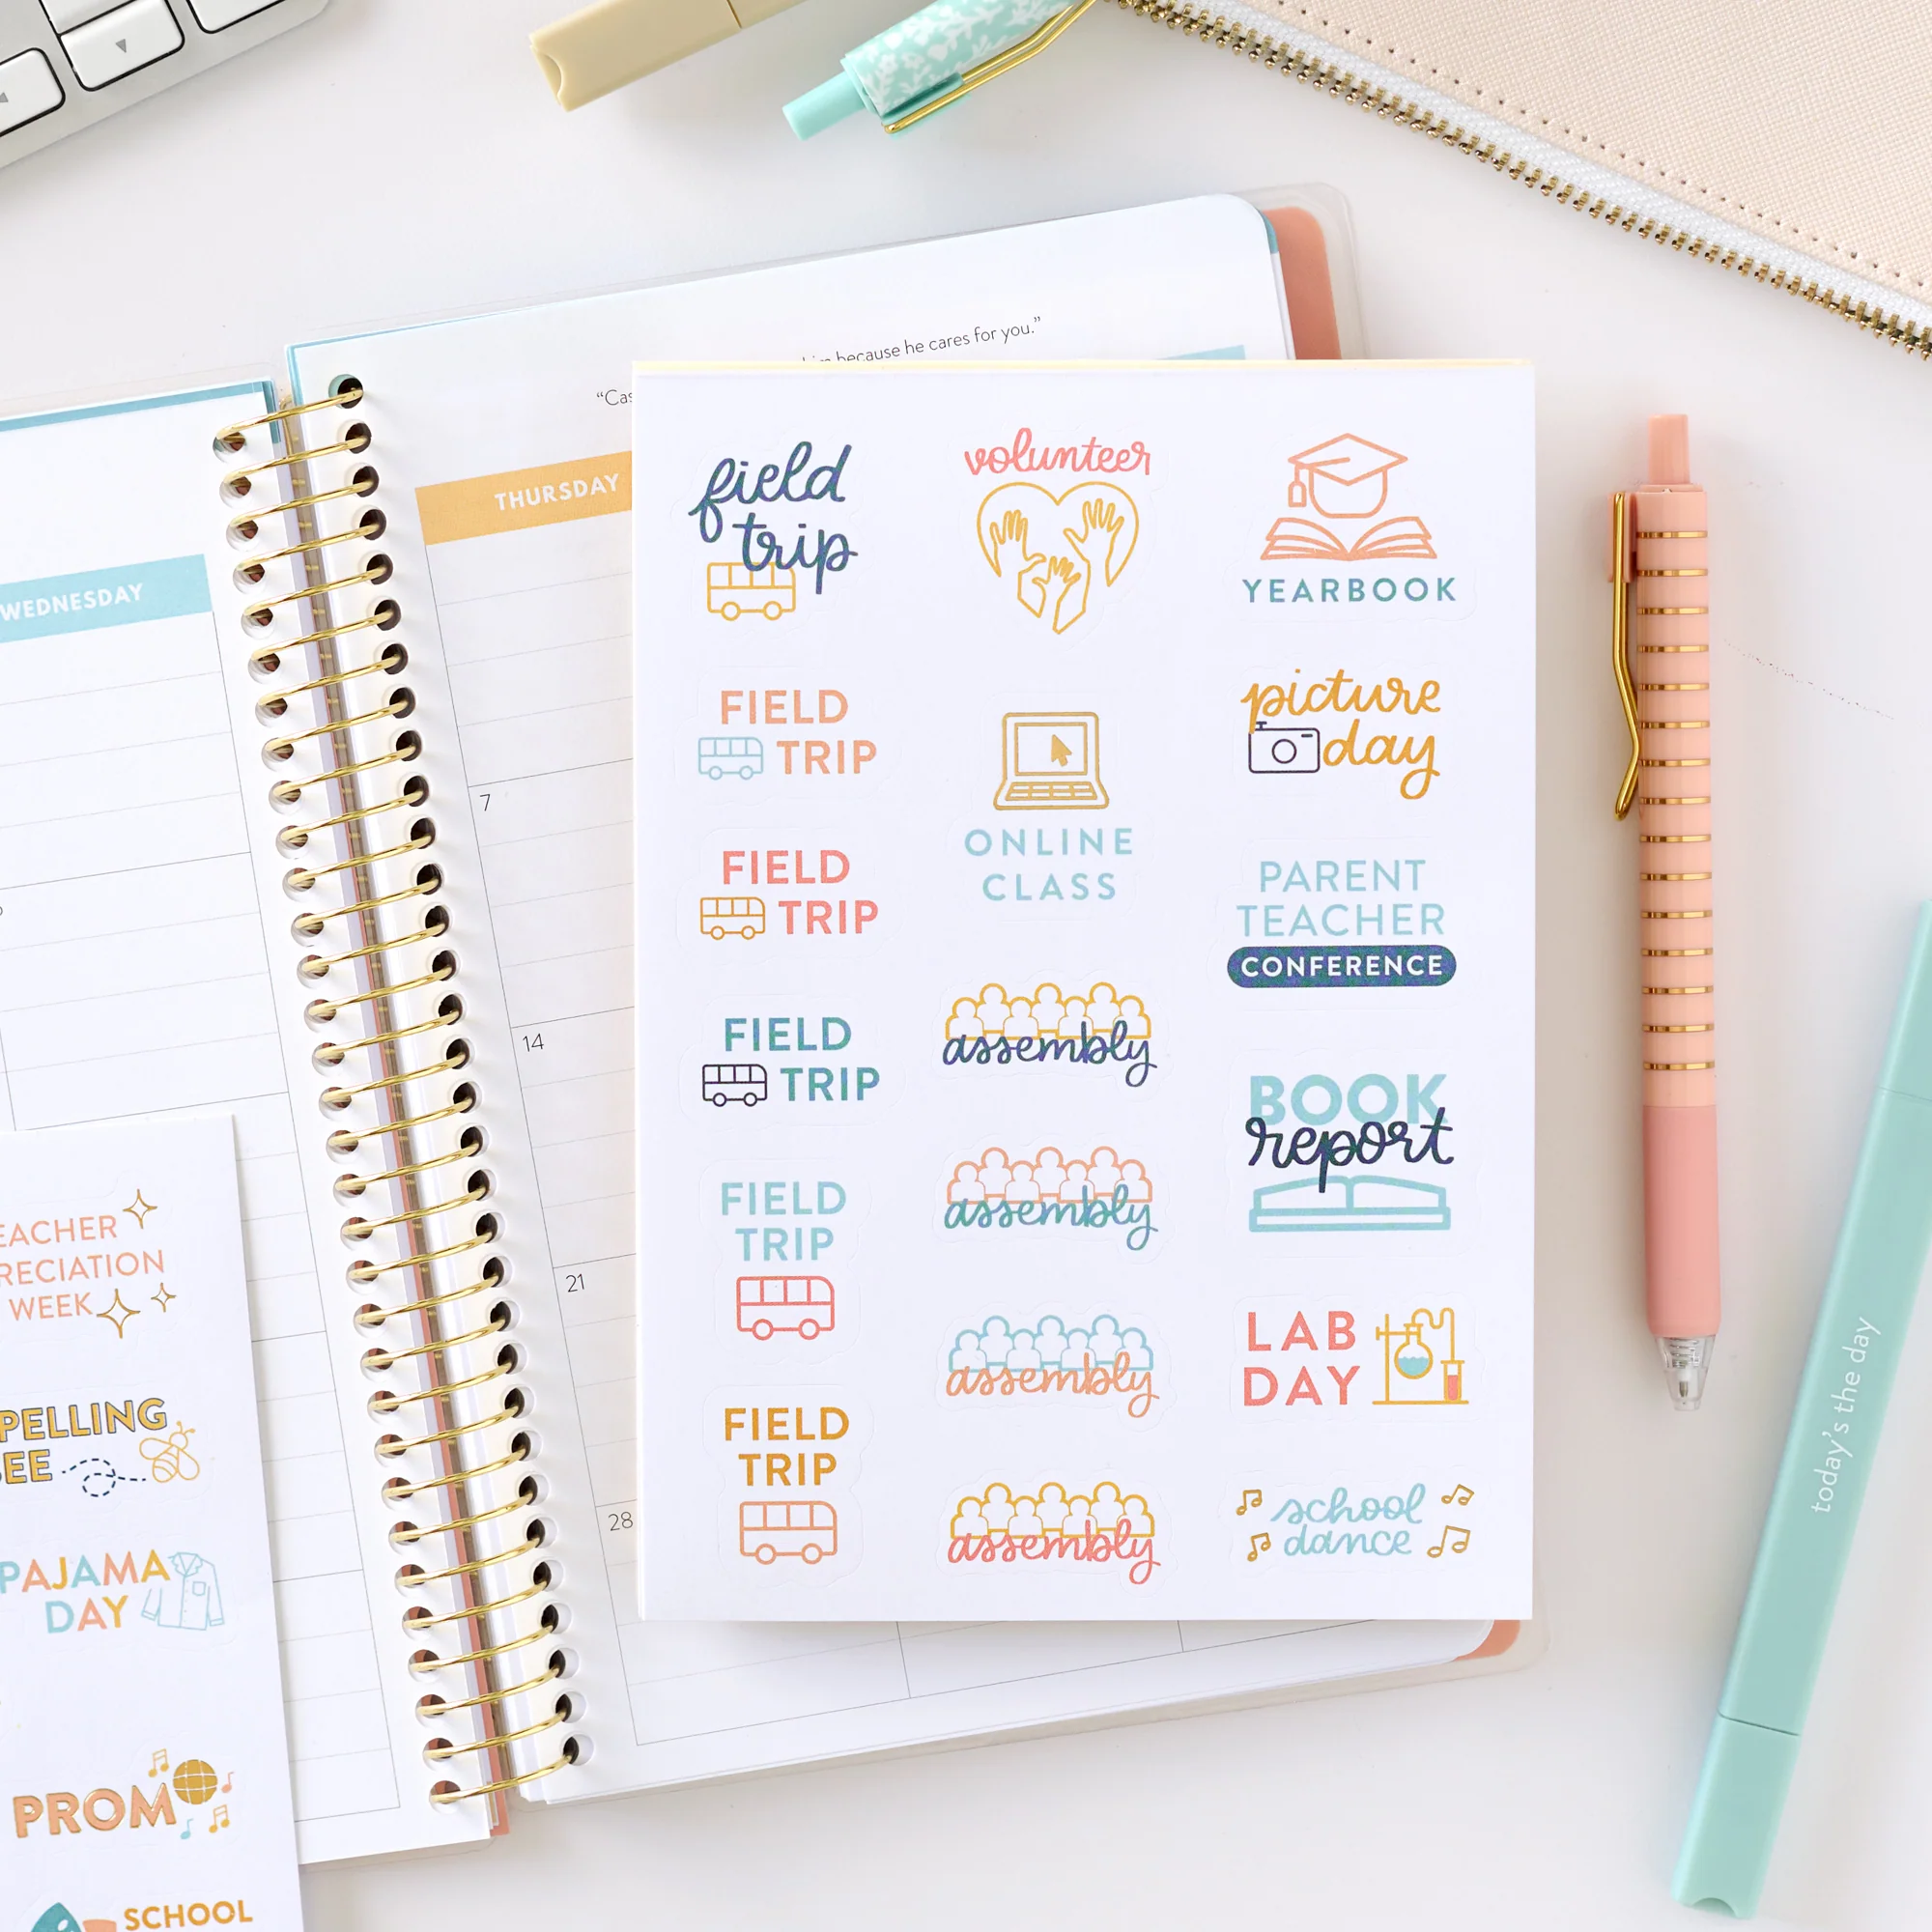 because he cares for you.”
THURSDAY
WEDNESDAY
7
14
21
28
field
trip
FIELD
TRIP
FIELD
TRIP
FIELD
TRIP
FIELD
TRIP
FIELD
TRIP
volunteer
ONLINE
CLASS
assembly
assembly
assembly
assembly
YEARBOOK
picture
day
PARENT
TEACHER
CONFERENCE
BOOK
report
LAB
DAY
school
dance
WEEK
PAJAMA
DAY
PROM
SCHOOL
today's the day